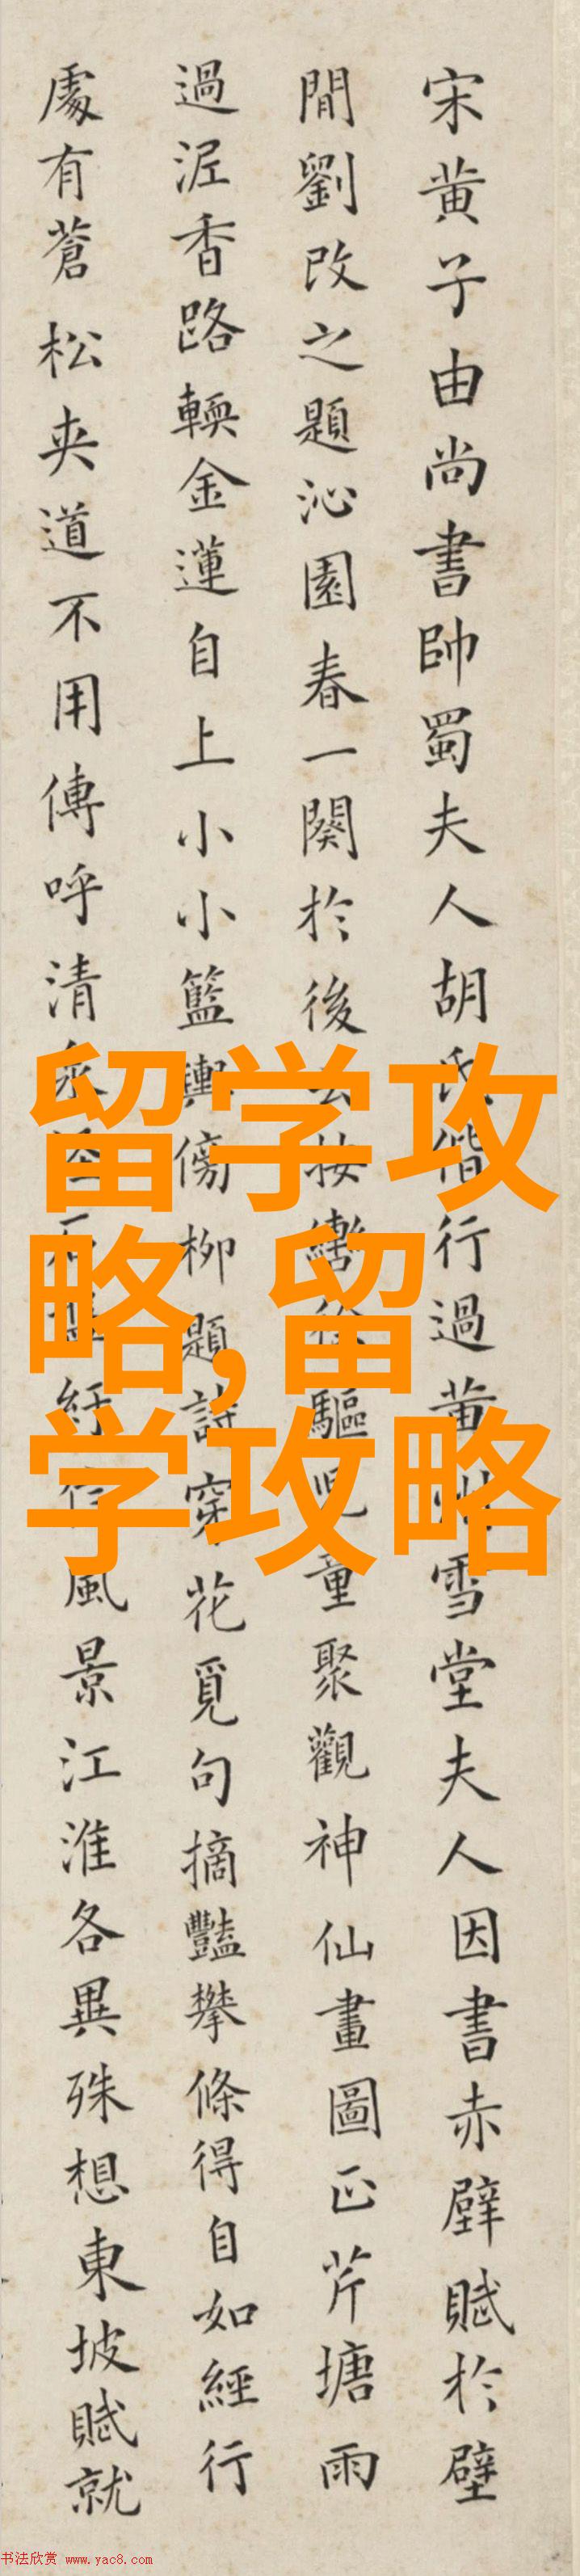 宋黄子由尚書帥蜀夫人胡氏偕行過黄州雪堂夫人因書赤壁賦於壁
間劉改之題沁園春一闋於後云按轡徐驅児童聚觀神仙畫圖正芹塘雨
過泥香路輭金蓮自上小小籃輿傍柳題詩穿花覓句摘豔攀條得自如經行
處有蒼松夾道不用傳呼清泉風景江淮各異殊想東坡賦就
留学攻
略,留
学攻略
书法欣赏 www.yac8.com